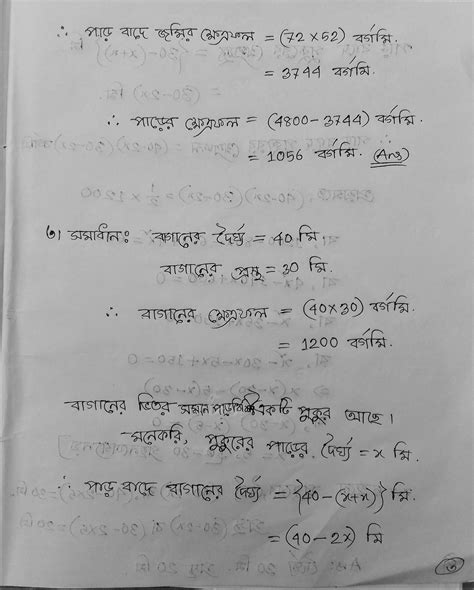 ∴ পাড় বাদে জমির ক্ষেত্রফল = (72 × 52) বর্গমি.
= 3744 বর্গমি.
∴ পাড়ের ক্ষেত্রফল = (4800 - 3744) বর্গমি.
= 1056 বর্গমি. (Ans)
৩। সমাধান: বাগানের দৈর্ঘ্য = 40 মি.
বাগানের প্রস্থ = 30 মি.
∴ বাগানের ক্ষেত্রফল = (40×30) বর্গমি.
= 1200 বর্গমি.
বাগানের ভিতর সমান পাড়বিশিষ্ট একটি পুকুর আছে।
মনেকরি, পুকুরের পাড়ের দৈর্ঘ্য = x মি.
∴ পাড় বাদে বাগানের দৈর্ঘ্য = {40 - (x+x)} মি.
= (40 - 2x) মি